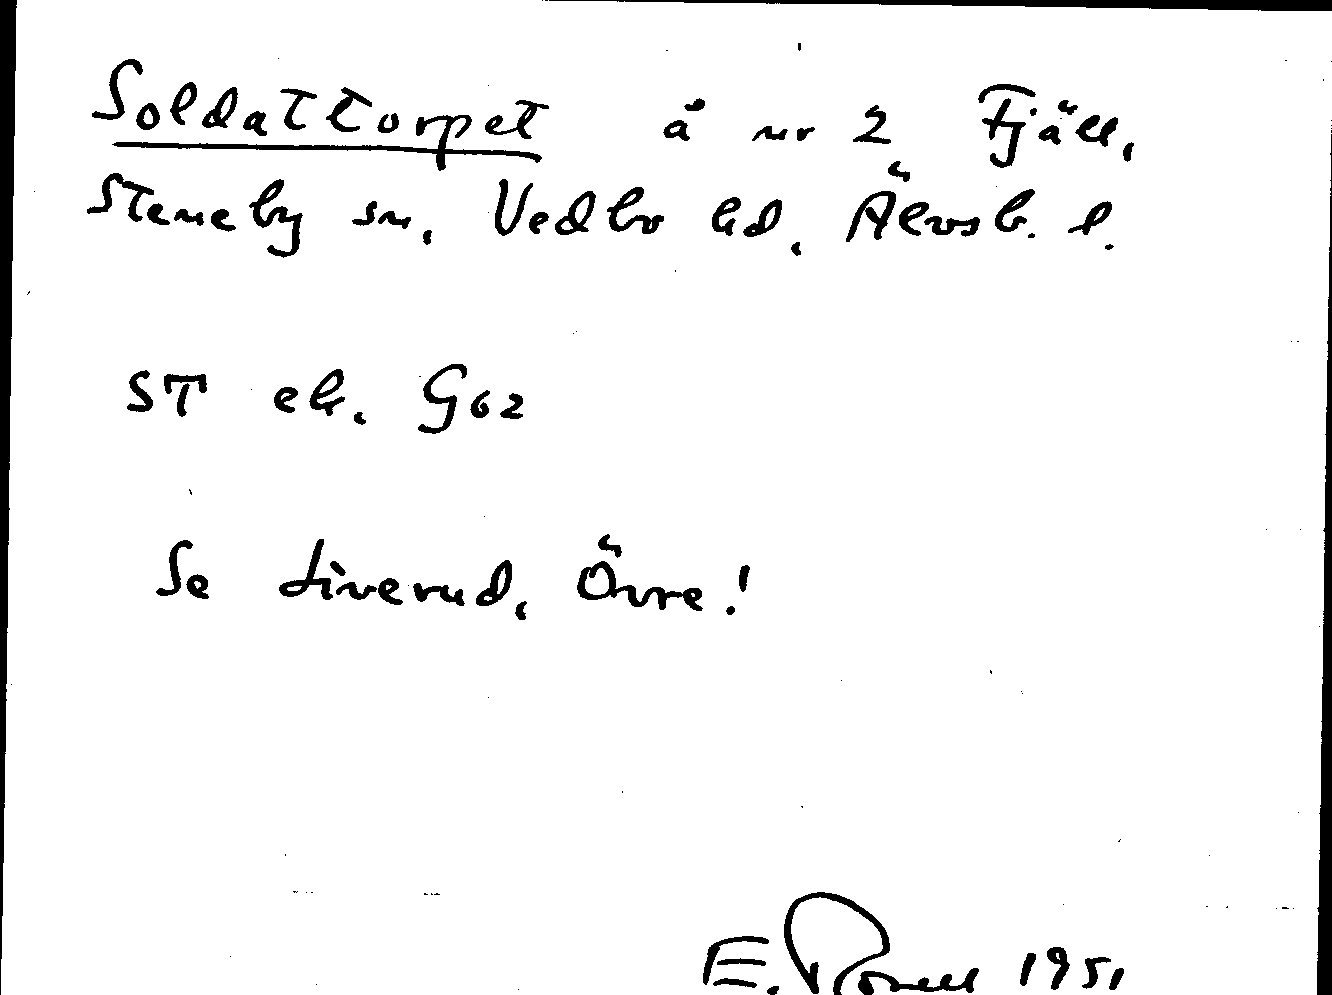 Soldattorpet å nr 2 Fjäll,
Steneby sn, Vedbo hd, Älvsb. l.
ST ek. G62
Se Liverud, Övre!
E. 1951